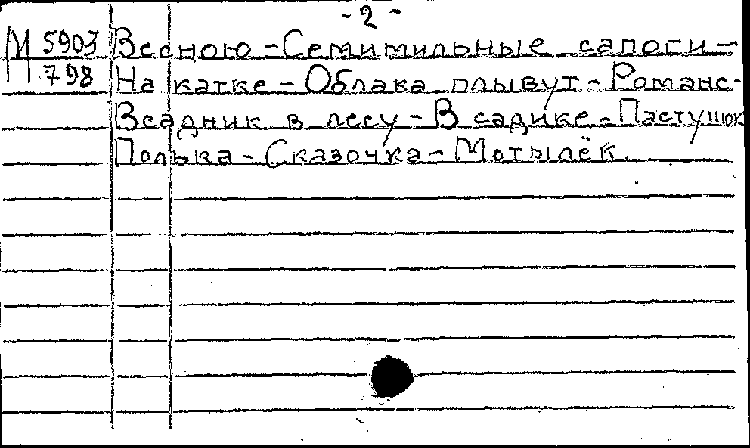 - 2 -
М 5903 Весною - Семимильные сапоги -
798 На катке - Облака плывут - Романс -
Всадник в лесу - В садике - Пастушок
Полька - Сказочка - Мотылёк.